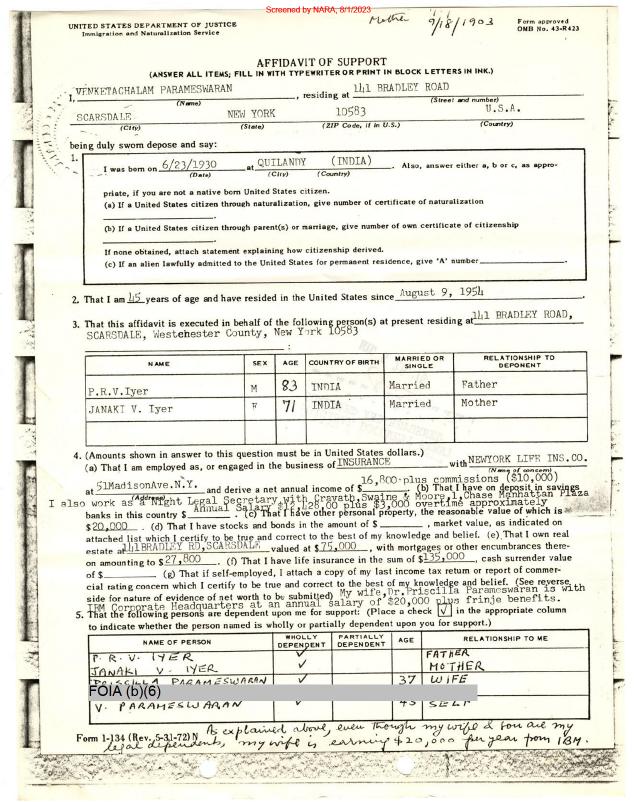 Screened by NARA, 8/1/2023
Mother 9/18/1903
UNITED STATES DEPARTMENT OF JUSTICE
Immigration and Naturalization Service
Form approved
OMB No. 43-R423
AFFIDAVIT OF SUPPORT
(ANSWER ALL ITEMS; FILL IN WITH TYPEWRITER OR PRINT IN BLOCK LETTERS IN INK.)
I, VENKETACHALAM PARAMESWARAN, residing at 141 BRADLEY ROAD
(Name) (Street and number)
SCARSDALE NEW YORK 10583 U.S.A.
(City) (State) (ZIP Code, if in U.S.) (Country)
being duly sworn depose and say:
1. I was born on 6/23/1930 at QUILANDY (INDIA) Also, answer either a, b or c, as appro-
(Date) (City) (Country)
priate, if you are not a native born United States citizen.
(a) If a United States citizen through naturalization, give number of certificate of naturalization
(b) If a United States citizen through parent(s) or marriage, give number of own certificate of citizenship
If none obtained, attach statement explaining how citizenship derived.
(c) If an alien lawfully admitted to the United States for permanent residence, give 'A' number
2. That I am 45 years of age and have resided in the United States since August 9, 1954.
3. That this affidavit is executed in behalf of the following person(s) at present residing at 141 BRADLEY ROAD,
SCARSDALE, Westchester County, New York 10583
NAME SEX AGE COUNTRY OF BIRTH MARRIED OR SINGLE RELATIONSHIP TO DEPONENT
P.R.V.Iyer M 83 INDIA Married Father
JANAKI V. Iyer F 71 INDIA Married Mother
4. (Amounts shown in answer to this question must be in United States dollars.)
(a) That I am employed as, or engaged in the business of INSURANCE with NEWYORK LIFE INS.CO.
(Name of concern)
at 51MadisonAve.N.Y. and derive a net annual income of $ 16,800-plus commissions ($10,000) (b) That I have on deposit in savings
(Address)
I also work as a Night Legal Secretary with Cravath, Swaine & Moore,1,Chase Manhattan Plaza
Annual Salary $12,428,00 plus $3,000 overtime approximately
banks in this country $ . (c) That I have other personal property, the reasonable value of which is
$20,000 . (d) That I have stocks and bonds in the amount of $ , market value, as indicated on
attached list which I certify to be true and correct to the best of my knowledge and belief. (e) That I own real
estate at 141BRADLEY RD,SCARSDALE valued at $ 75,000 , with mortgages or other encumbrances there-
on amounting to $ 27,800 . (f) That I have life insurance in the sum of $135,000 , cash surrender value
of $ (g) That if self-employed, I attach a copy of my last income tax return or report of commer-
cial rating concern which I certify to be true and correct to the best of my knowledge and belief. (See reverse
side for nature of evidence of net worth to be submitted) My wife,Dr.Priscilla Parameswaran is with
IBM Corporate Headquarters at an annual salary of $20,000 plus frinje benefits.
5. That the following persons are dependent upon me for support: (Place a check [√] in the appropriate column
to indicate whether the person named is wholly or partially dependent upon you for support.)
NAME OF PERSON WHOLLY DEPENDENT PARTIALLY DEPENDENT AGE RELATIONSHIP TO ME
P. R. V. IYER ✓ FATHER
JANAKI V. IYER ✓ MOTHER
PRISCILLA PARAMESWARAN 37 WIFE
FOIA (b)(6)
V. PARAMESWARAN ✓ 45 SELF
Form I-134 (Rev. 5-31-72)N As explained above, even though my wife & son are my
legal dependents, my wife is earning $20,000 per year from IBM.